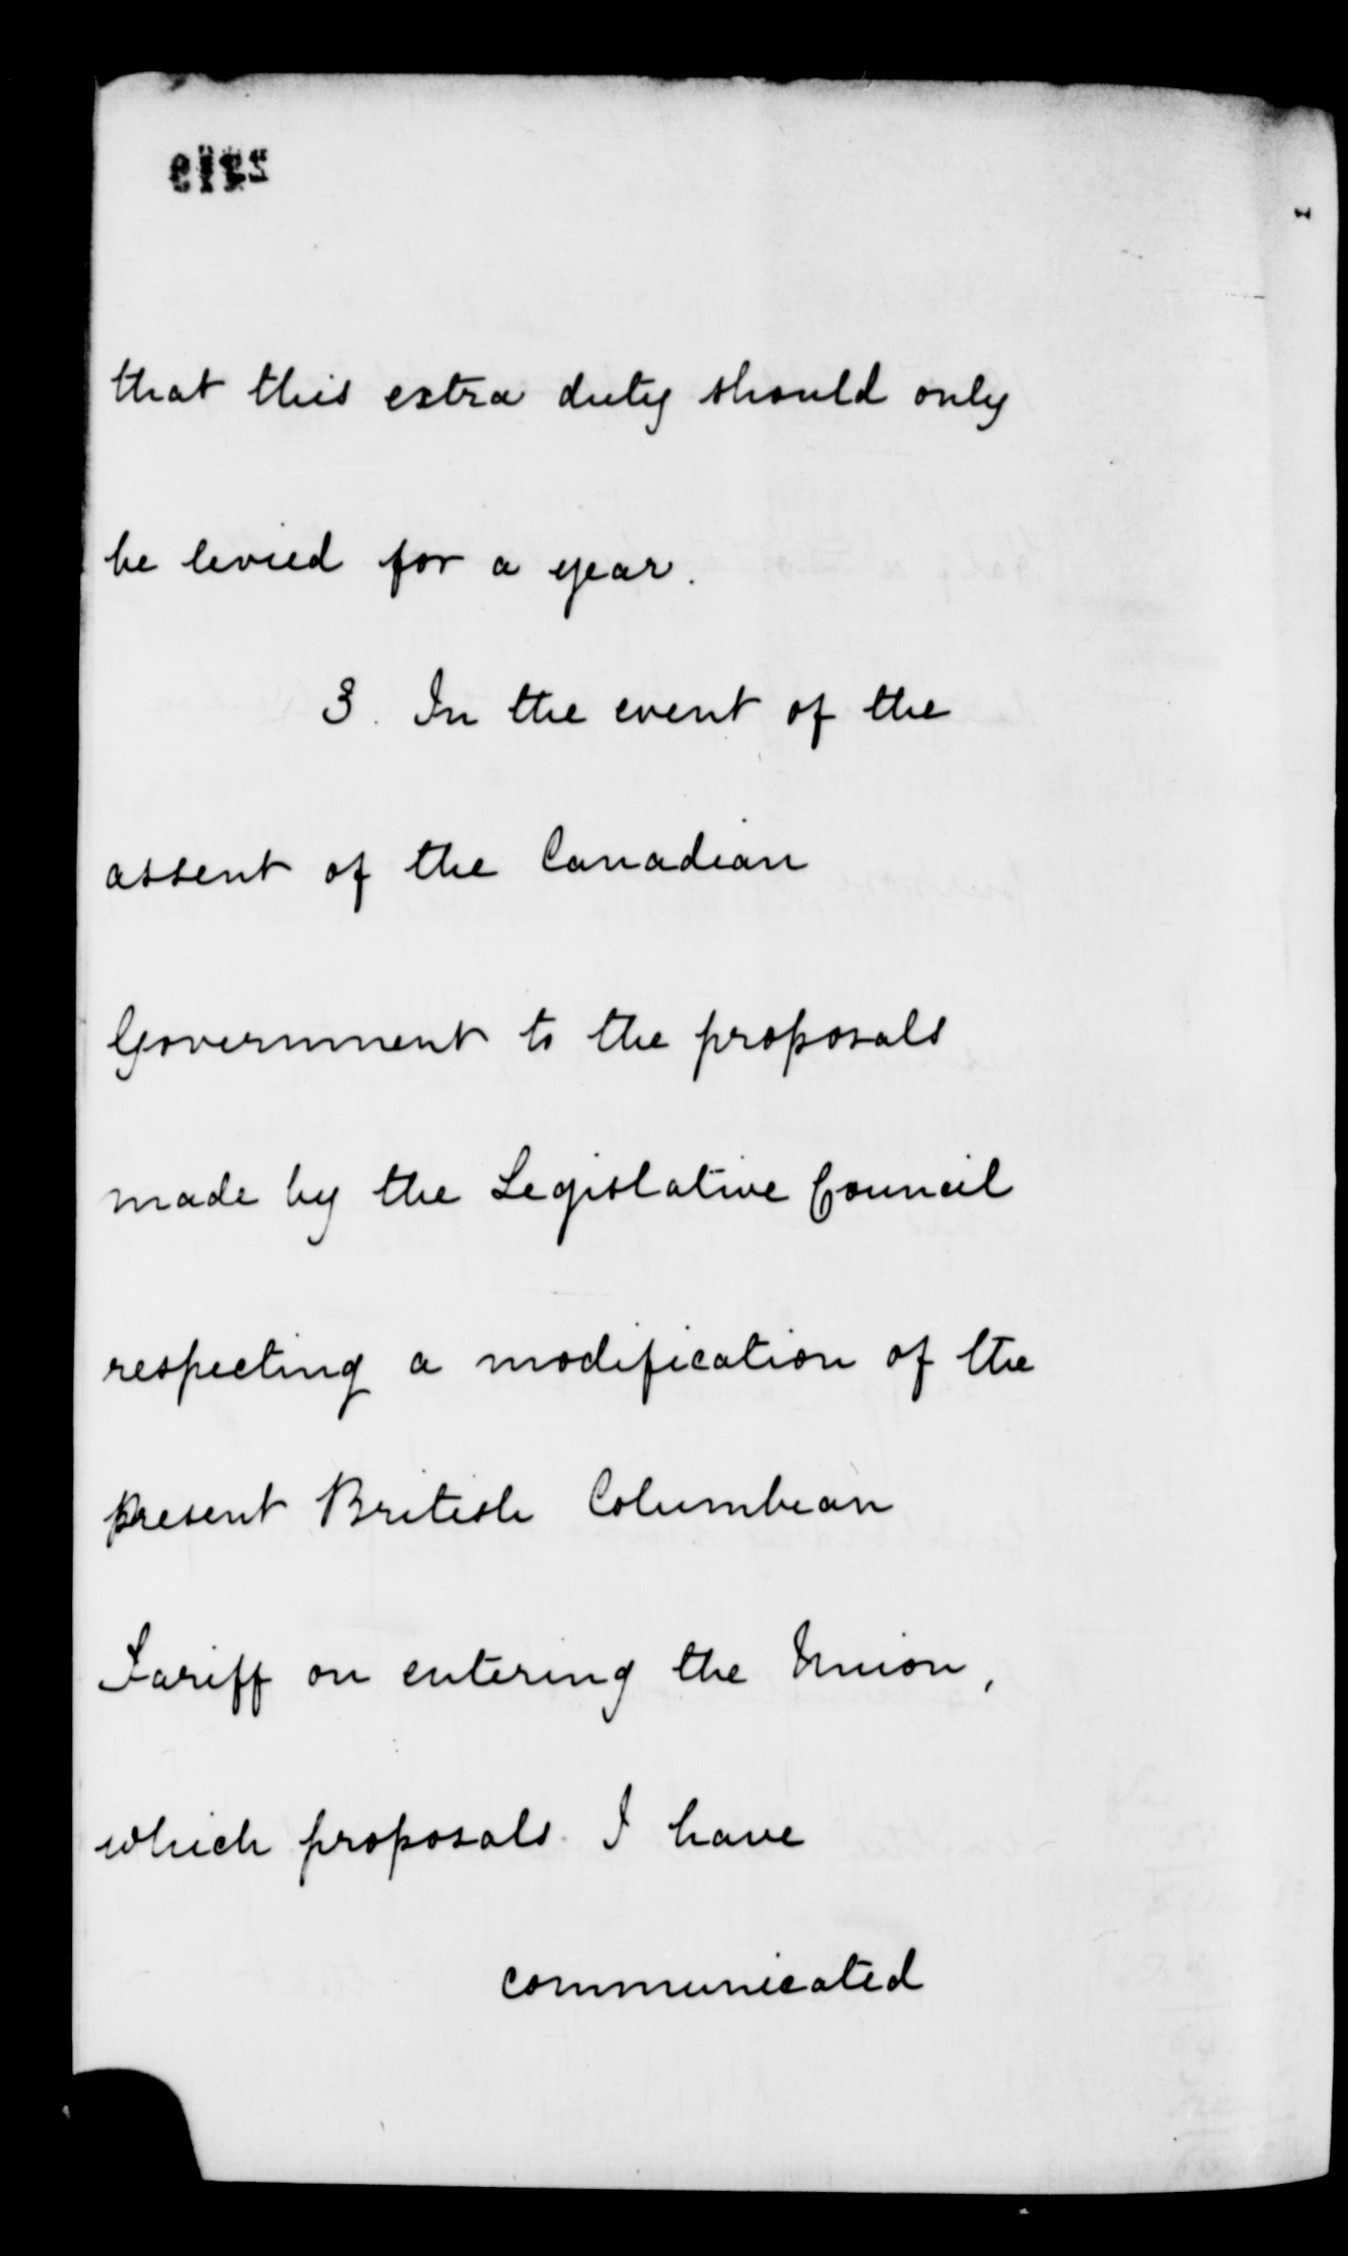 that this extra duty should only
be levied for a year.
3. In the event of the
assent of the Canadian
Government to the proposals
made by the Legislative Council
respecting a modification of the
present British Columbian
Tariff on entering the Union,
which proposals I have
communicated